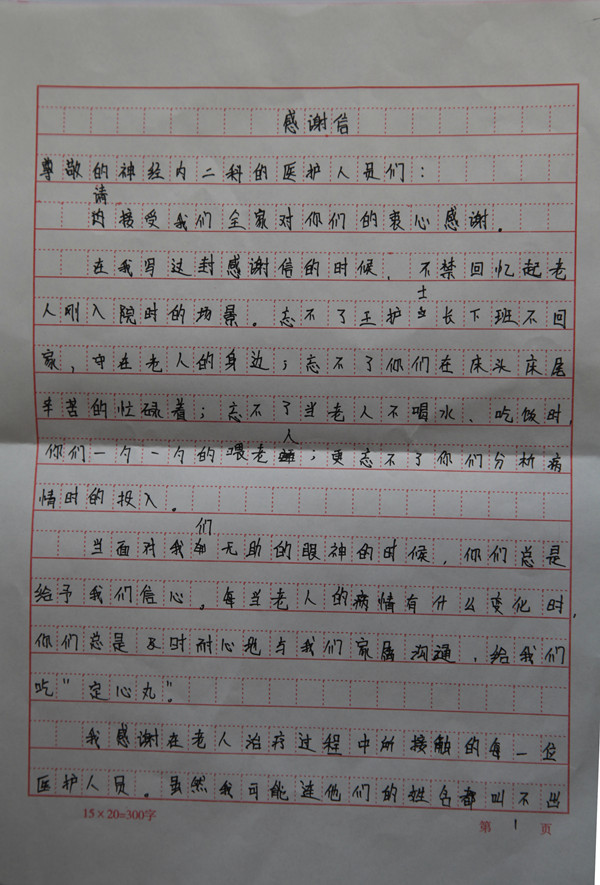 感谢信
尊敬的神经内二科的医护人员们：
请接受我们全家对你们的衷心感谢。
在我写这封感谢信的时候，不禁回忆起老
人刚入院时的场景。忘不了王护士长下班不回
家，守在老人的身边；忘不了你们在床头床尾
辛苦的忙碌着；忘不了当老人不喝水、吃饭时，
你们一勺一勺的喂老人；更忘不了你们分析病
情时的投入。
当面对我们无助的眼神的时候，你们总是
给予我们信心。每当老人的病情有什么变化时，
你们总是及时耐心地与我们家属沟通，给我们
吃"定心丸"。
我感谢在老人治疗过程中所接触的每一位
医护人员。虽然我可能连他们的姓名都叫不出
15×20=300字
第 1 页